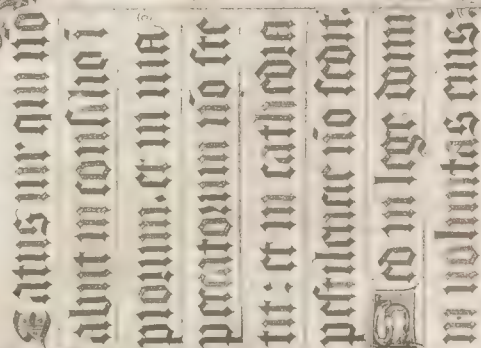 Beatus uir qui no
abiit in consilio i
piorum. et in uia
peccatorum nō ste
tit: et in cathedra
pestilencie nō sedit.
Sed in lege domi
ni uoluntas eius.